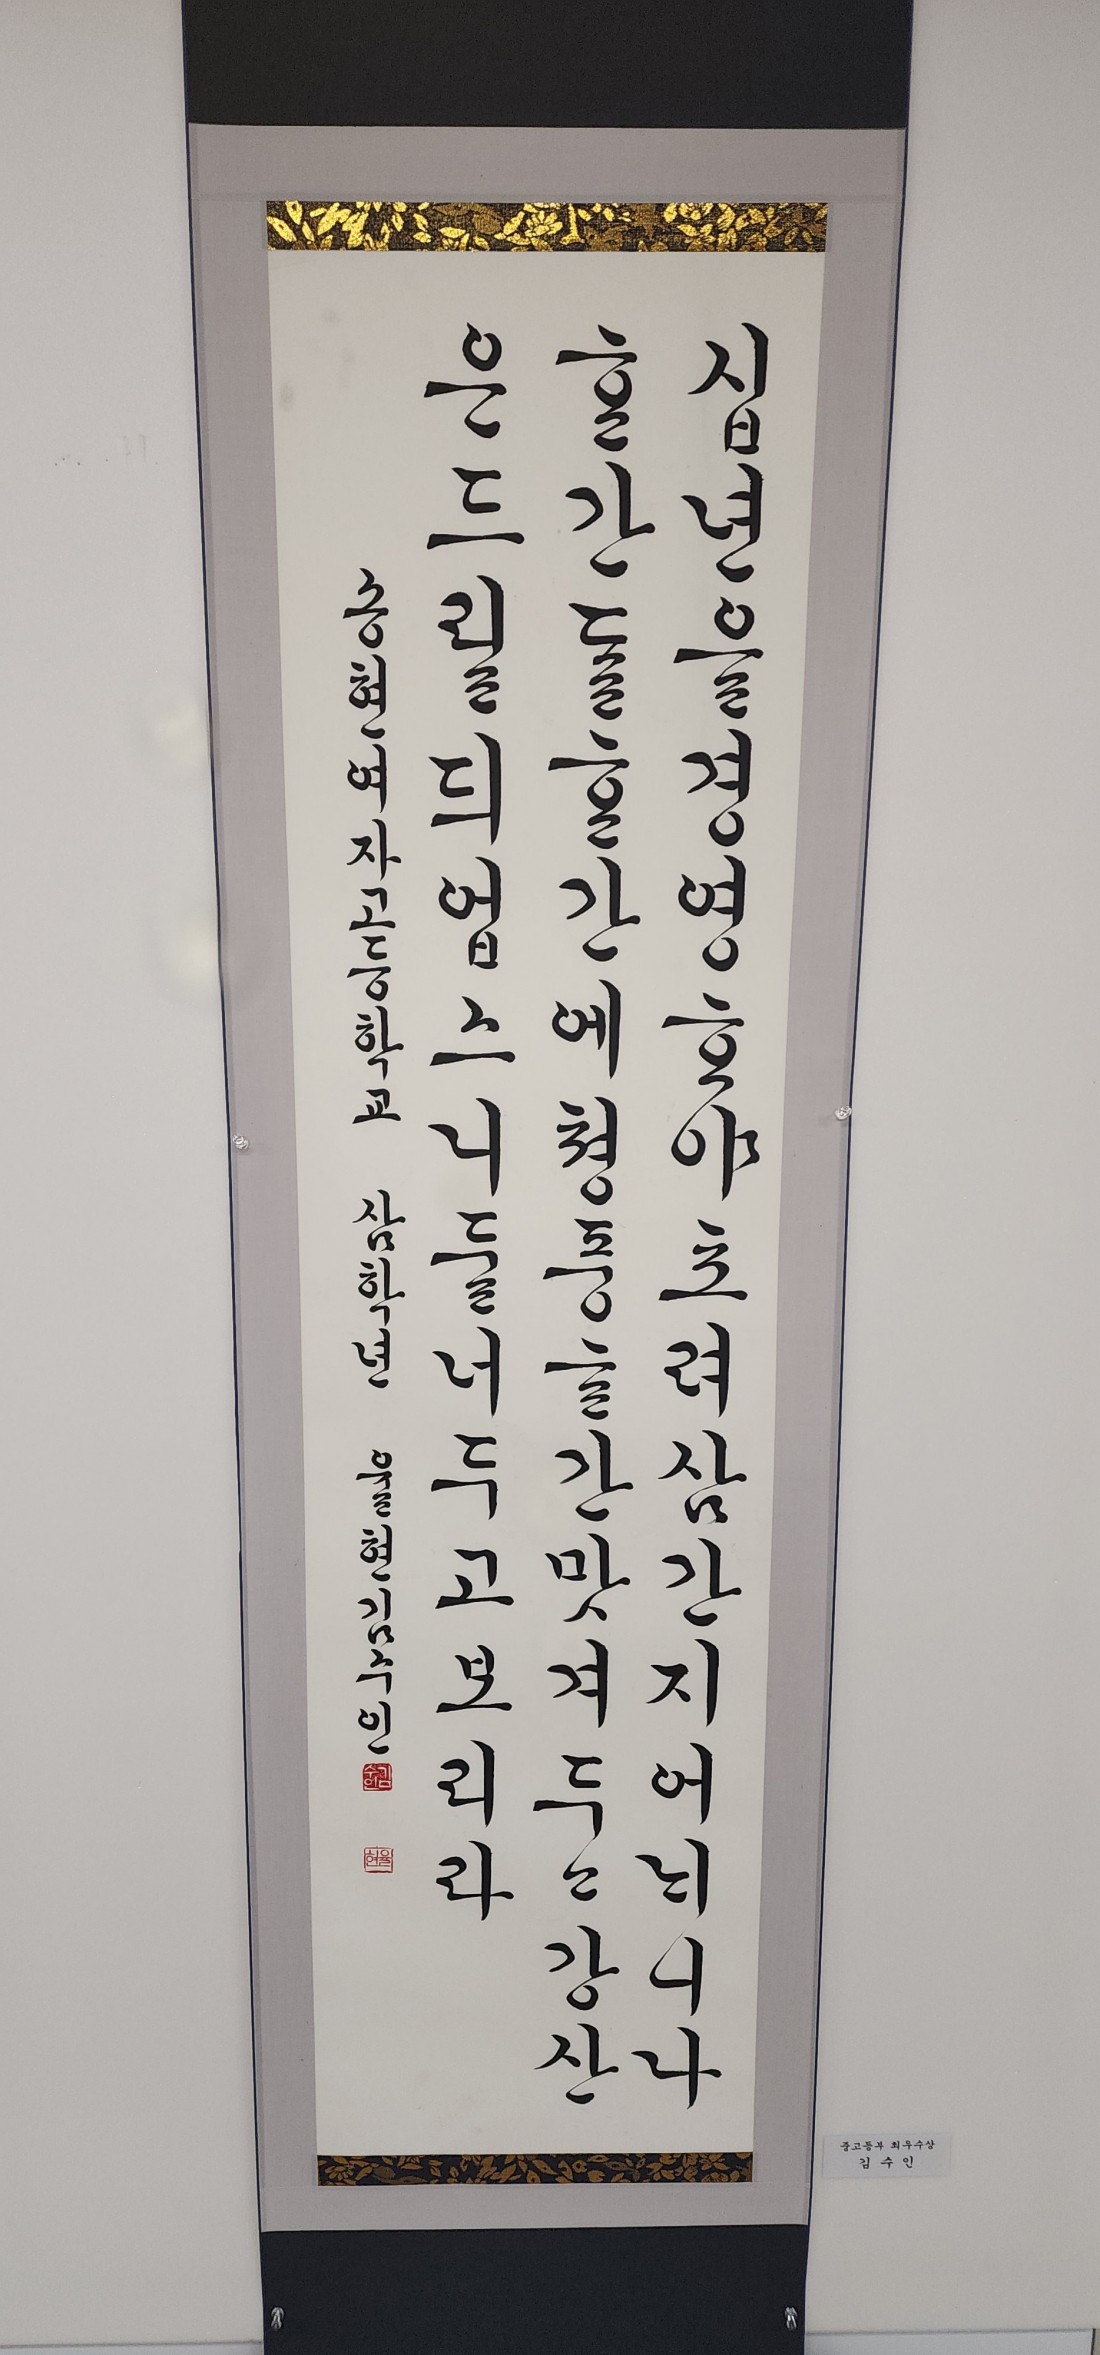 십년을경영ᄒᆞ야초려삼간지어ᄂᆡ니나
ᄒᆞᆫ간ᄃᆞᆯᄒᆞᆫ간에쳥풍ᄒᆞᆫ간맛겨두ᄂᆞᆫ강산
은드릴듸업스니둘너두고보리라
송현여자고등학교 삼학년 율현김수인
김수인
율현
중고등부 최우수상
김 수 인